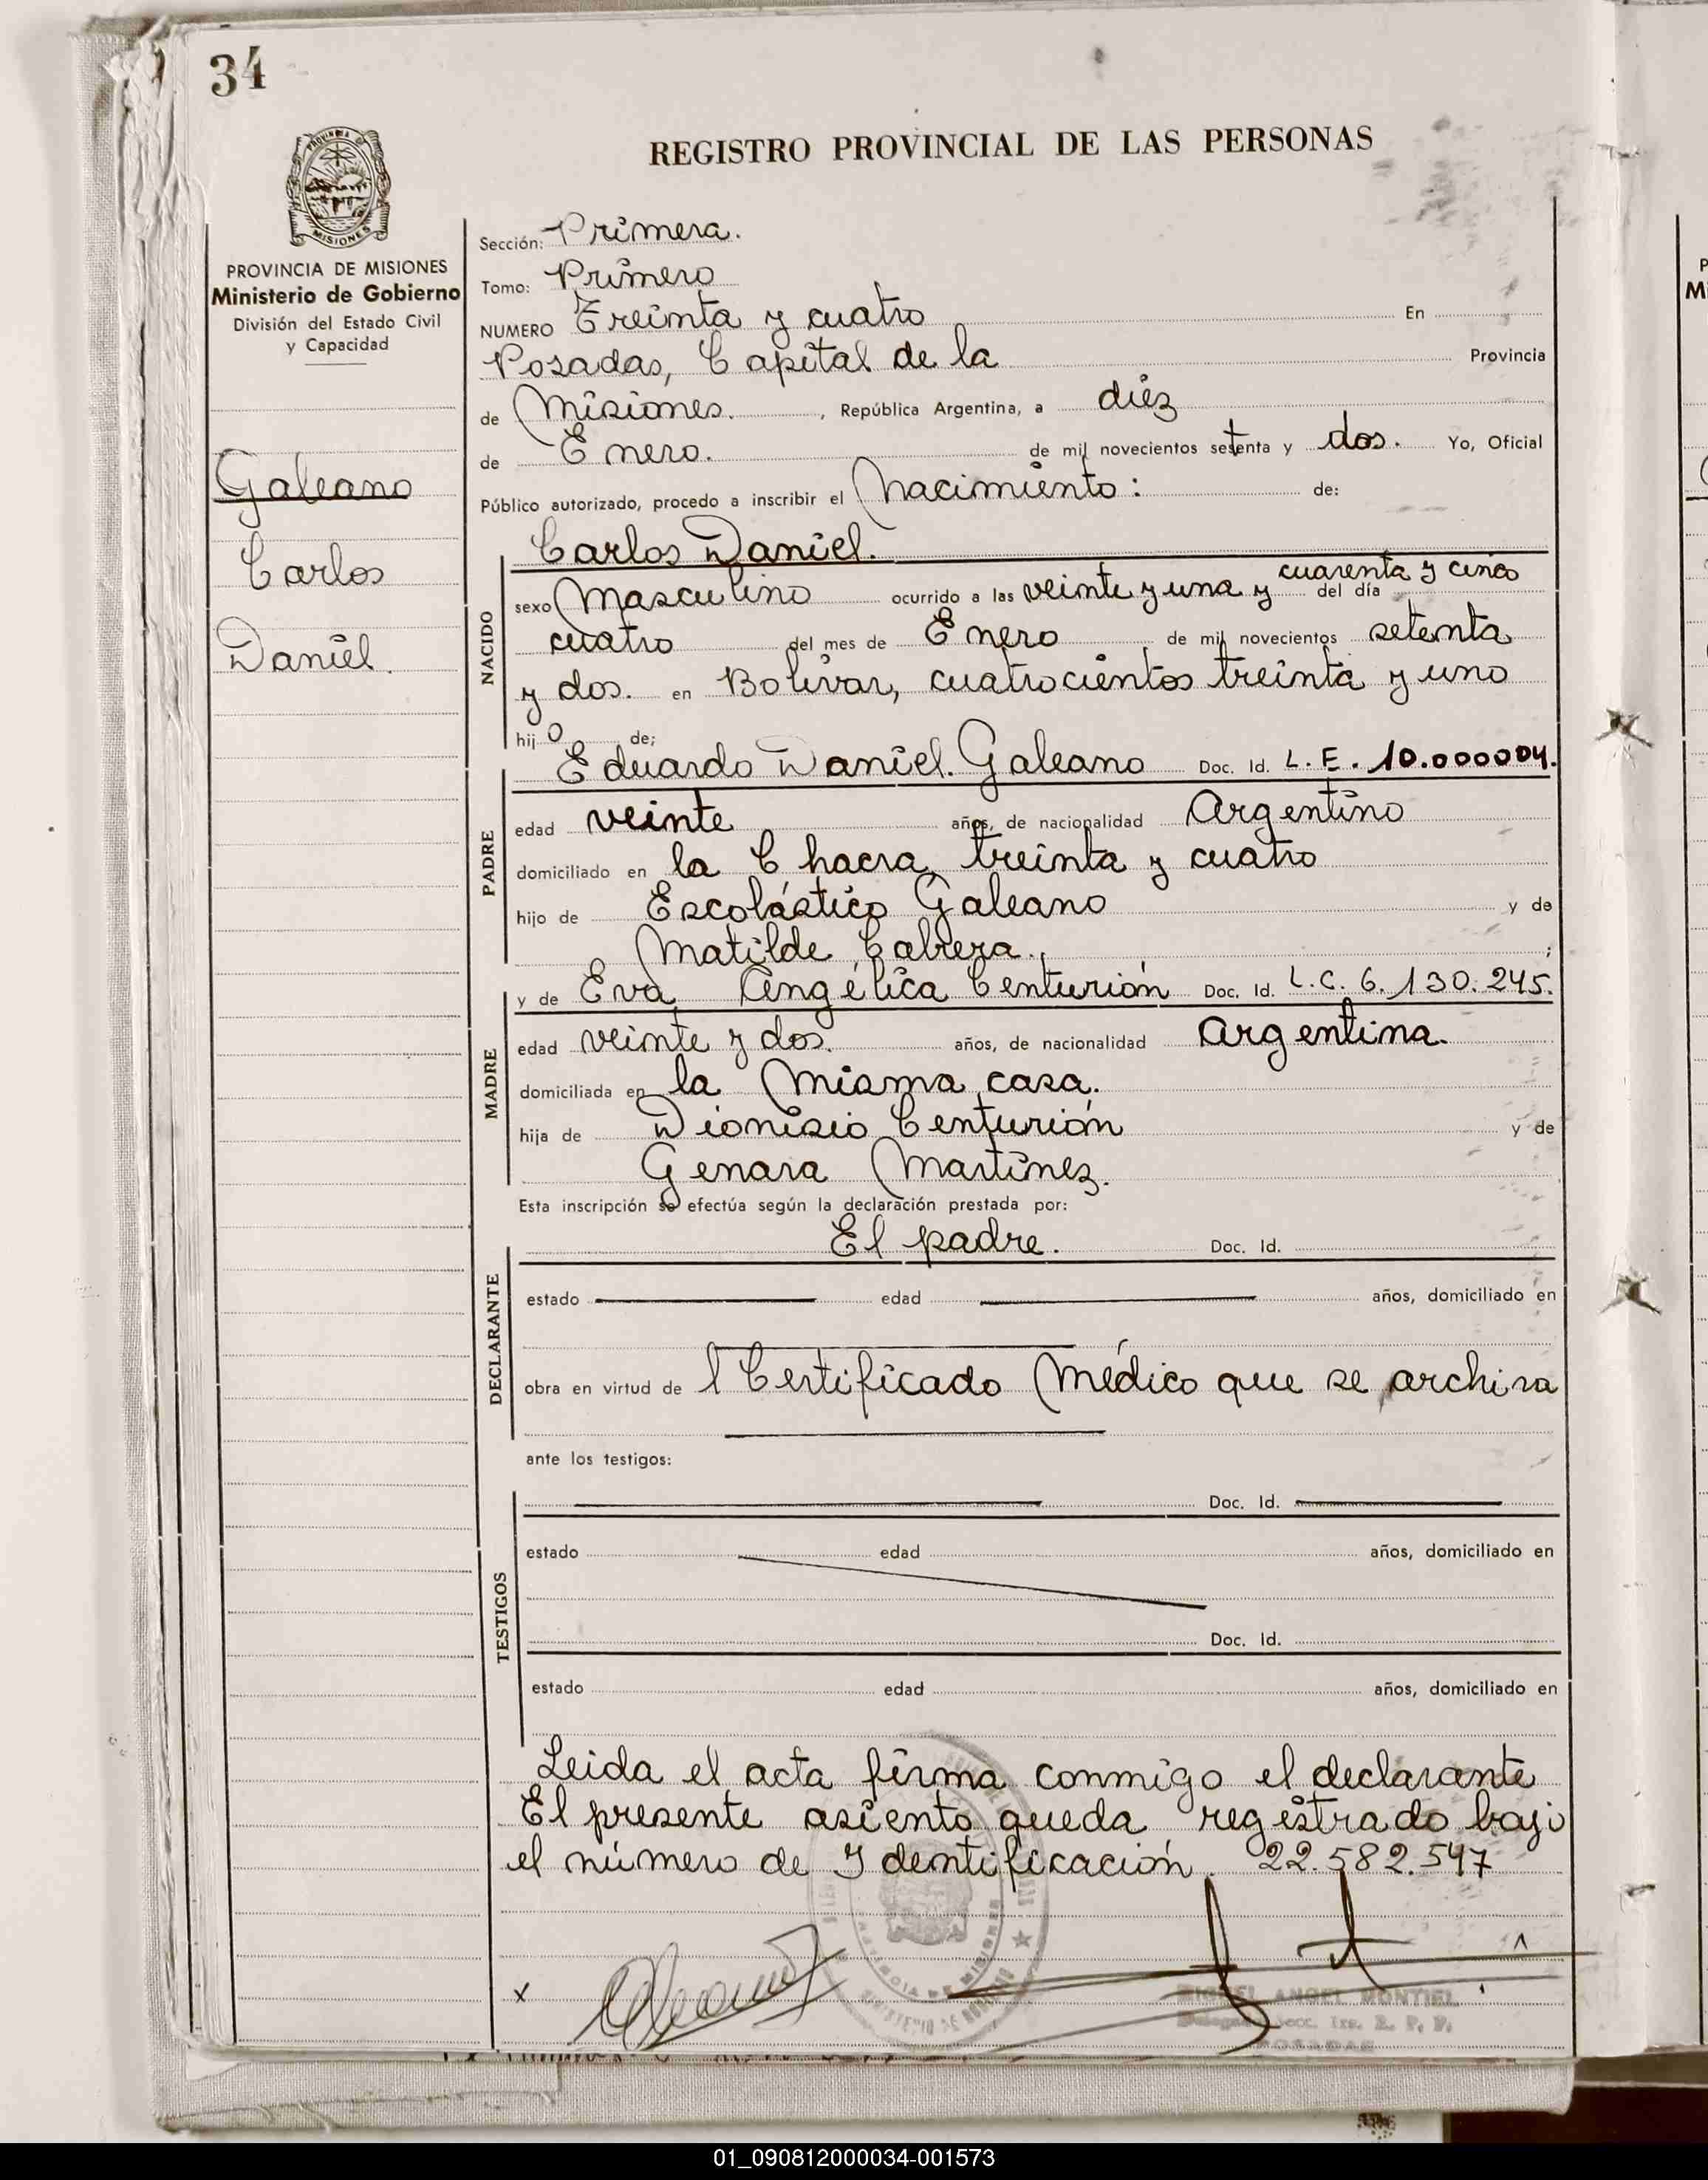 34
PROVINCIA DE MISIONES
Ministerio de Gobierno
División del Estado Civil
y Capacidad
Galeano
Carlos
Daniel.
REGISTRO PROVINCIAL DE LAS PERSONAS
Sección: Primera.
Tomo: Primero
NUMERO Treinta y cuatro En
Posadas, Capital de la Provincia
de Misiones. , República Argentina, a diez
de Enero. de mil novecientos setenta y dos. Yo, Oficial
Público autorizado, procedo a inscribir el Nacimiento: de:
Carlos Daniel.
NACIDO
sexo Masculino ocurrido a las veinte y una y cuarenta y cinco del día
cuatro del mes de Enero de mil novecientos setenta
y dos. en Bolívar, cuatrocientos treinta y uno
hijo de;
Eduardo Daniel. Galeano Doc. Id. L.E. 10.000004.
PADRE
edad veinte años, de nacionalidad Argentino
domiciliado en la Chacra treinta y cuatro
hijo de Escolástico Galeano y de
Matilde Cabrera. ;
y de Eva Angélica Centurión Doc. Id. L.C. 6.130.245.
MADRE
edad veinte y dos. años, de nacionalidad Argentina.
domiciliada en la misma casa.
hija de Dionisio Centurión y de
Genara Martínez.
Esta inscripción se efectúa según la declaración prestada por:
El padre. Doc. Id.
DECLARANTE
estado edad años, domiciliado en
obra en virtud de l Certificado Médico que se archiva
ante los testigos:
Doc. Id.
TESTIGOS
estado edad años, domiciliado en
Doc. Id.
estado edad años, domiciliado en
Leida el acta firma conmigo el declarante
El presente asiento queda registrado bajo
el número de Identificación. 22.582.547
x
MIGUEL ANGEL MONTIEL
POSADAS
01_090812000034-001573